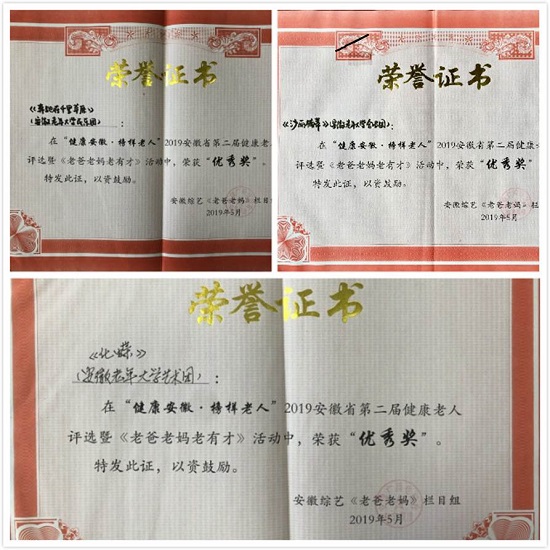 荣誉证书
《奔驰在千里草原》
(安徽老年大学民乐团):
在“健康安徽·榜样老人”2019安徽省第二届健康老人
评选暨《老爸老妈老有才》活动中，荣获“优秀奖”
特发此证，以资鼓励。
安徽综艺《老爸老妈》栏目组
2019年5月
荣誉证书
(安徽老年大学合唱团):
在“健康安徽·榜样老人”2019安徽省第二届健康老
评选暨《老爸老妈老有才》活动中，荣获“优秀奖”
特发此证，以资鼓励。
安徽综艺《老爸老妈》栏目组
2019年5月
荣誉证书
《化蝶》
(安徽老年大学艺术团):
在“健康安徽·榜样老人”2019安徽省第二届健康老人
评选暨《老爸老妈老有才》活动中，荣获“优秀奖”。
特发此证，以资鼓励。
安徽综艺《老爸老妈》栏目组
2019年5月